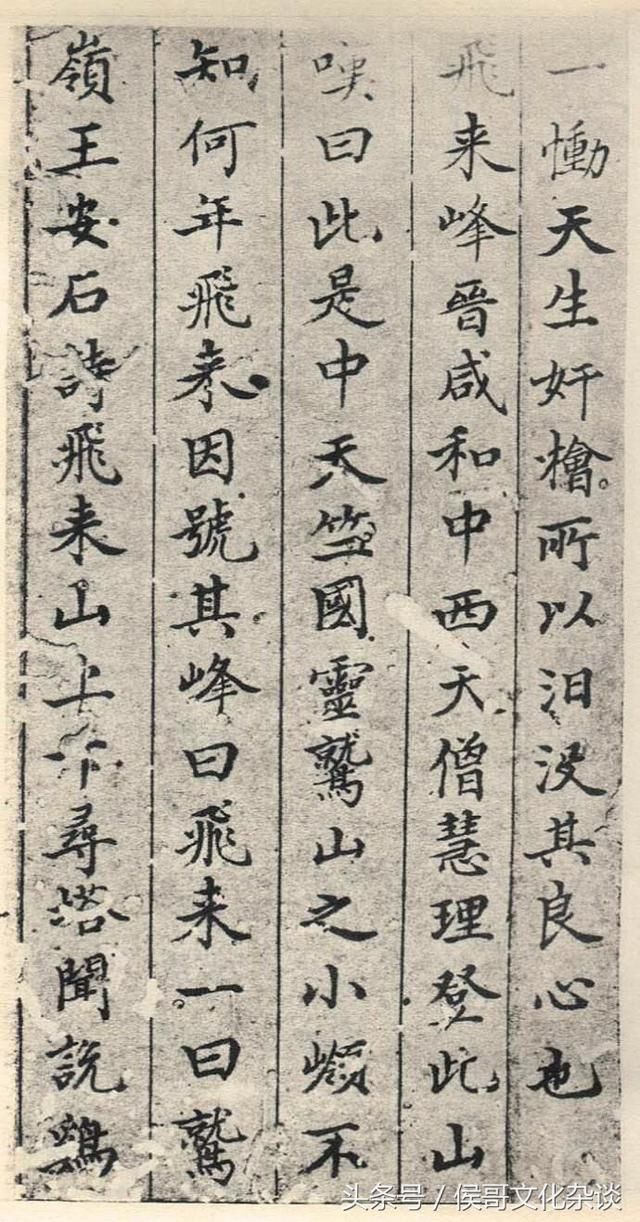 一慟天生奸檜所以汨没其良心也
飛来峰晉咸和中西天僧慧理登此山
嘆曰此是中天竺國靈鷲山之小嶺不
知何年飛来因號其峰曰飛来一曰鷲
嶺王安石詩飛来山上下尋塔聞說鷄
头条号/侯哥文化杂谈